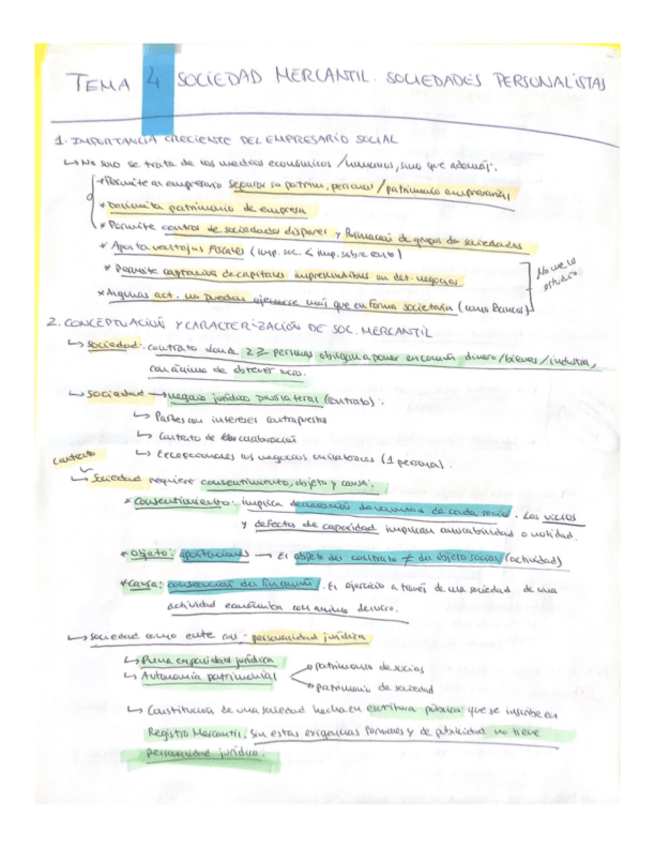 TEMA 4 SOCIEDAD MERCANTIL. SOCIEDADES PERSONALISTAS
1. IMPORTANCIA CRECIENTE DEL EMPRESARIO SOCIAL
↳ No solo se trata de los medios económicos / humanos, sino que además:
* Permite al empresario separar su patrim. personal / patrimonio empresarial
* Delimita patrimonio de empresa
* Permite control de sociedades dispares y formación de grupos de sociedades
* Aporta ventajas fiscales (imp. soc. < imp. sobre renta)
* Permite captación de capitales imprescindibles en det. negocios
* Algunas act. no pueden ejercerse más que en forma societaria (como Bancos)
No en
2. CONCEPTUACIÓN Y CARACTERIZACIÓN DE SOC. MERCANTIL
↳ Sociedad: contrato donde 2 ≥ personas obligan a poner en común dinero / bienes / industria,
con ánimo de obtener lucro.
↳ Sociedad → negocio jurídico plurilateral (contrato):
↳ Partes con intereses contrapuestos
↳ Contrato de colaboración
↳ Excepcionales los negocios unilaterales (1 persona).
contrato
↳ Sociedad requiere consentimiento, objeto y causa:
* Consentimiento: implica declaración de voluntad de cada socio. Los vicios
y defectos de capacidad implican anulabilidad o nulidad.
* Objeto: aportaciones → El objeto del contrato ≠ del objeto social (actividad)
* Causa: consecución del fin común. El ejercicio a través de una sociedad de una
actividad económica con animo de lucro.
↳ Sociedad como ente con personalidad jurídica
↳ Plena capacidad jurídica
↳ Autonomía patrimonial
patrimonio de socios
patrimonio de sociedad
↳ Constitución de una sociedad hecha en escritura pública que se inscribe en
Registro Mercantil. Sin estas exigencias formales y de publicidad no tiene
personalidad jurídica.